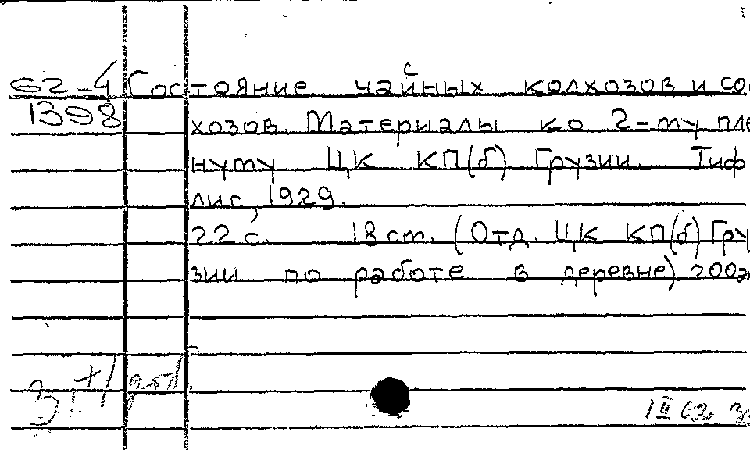 62-4 Состояние чайных колхозов и сов
1398 хозов. Материалы ко 2-му пле
нуму ЦК КП(б) Грузии. Тиф
лис, 1929.
22 с. 18 cm. (Отд. ЦК КП(б) Гру
зии по работе в деревне) 200э